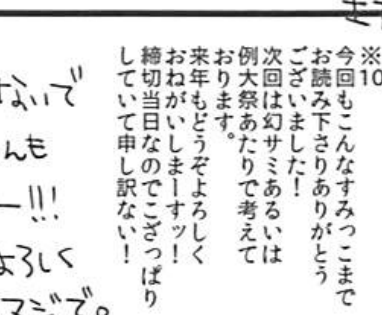 ※10
今回もこんなすみっこまで
お読み下さりありがとう
ございました!
次回は幻サミあるいは
例大祭あたりで考えて
おります。
来年もどうぞよろしく
おねがいしまーすッ!
締切当日なのでこざっぱり
していて申し訳ない!
ないで
んも
ー!!!
よろしく
マジで。